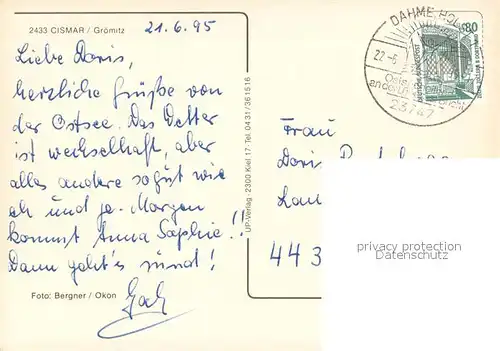 2433 CISMAR / Grömitz
21.6.95
Liebe Doris,
herzliche Grüße von
der Ostsee. Das Wetter
ist wechselhaft, aber
alles andere so gut wie
eh und je. Morgen
kommt Anna Saphie!!
Dann geht's rund!
Foto: Bergner / Okon
UP-Verlag · 2300 Kiel 17 · Tel. 04 31 / 36 15 16
DAHME, HOLST
22.-6.
23747
80
DEUTSCHE BUNDESPOST
Frau
Doris
443
privacy protection
Datenschutz